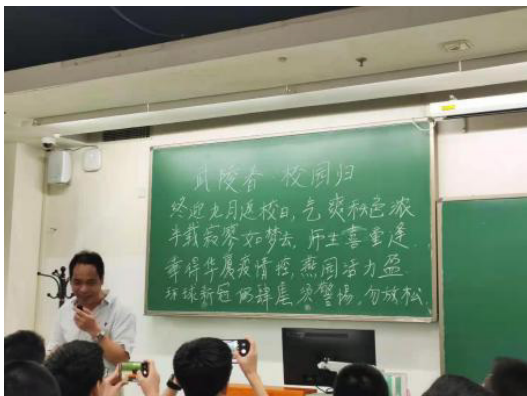 武陵春·校园归
终迎九月返校日，气爽秋色浓
半载寂寥如梦去，师生喜重逢
幸得华厦疫情控，燕园活力盈
环球新冠仍肆虐，须警惕，勿放松